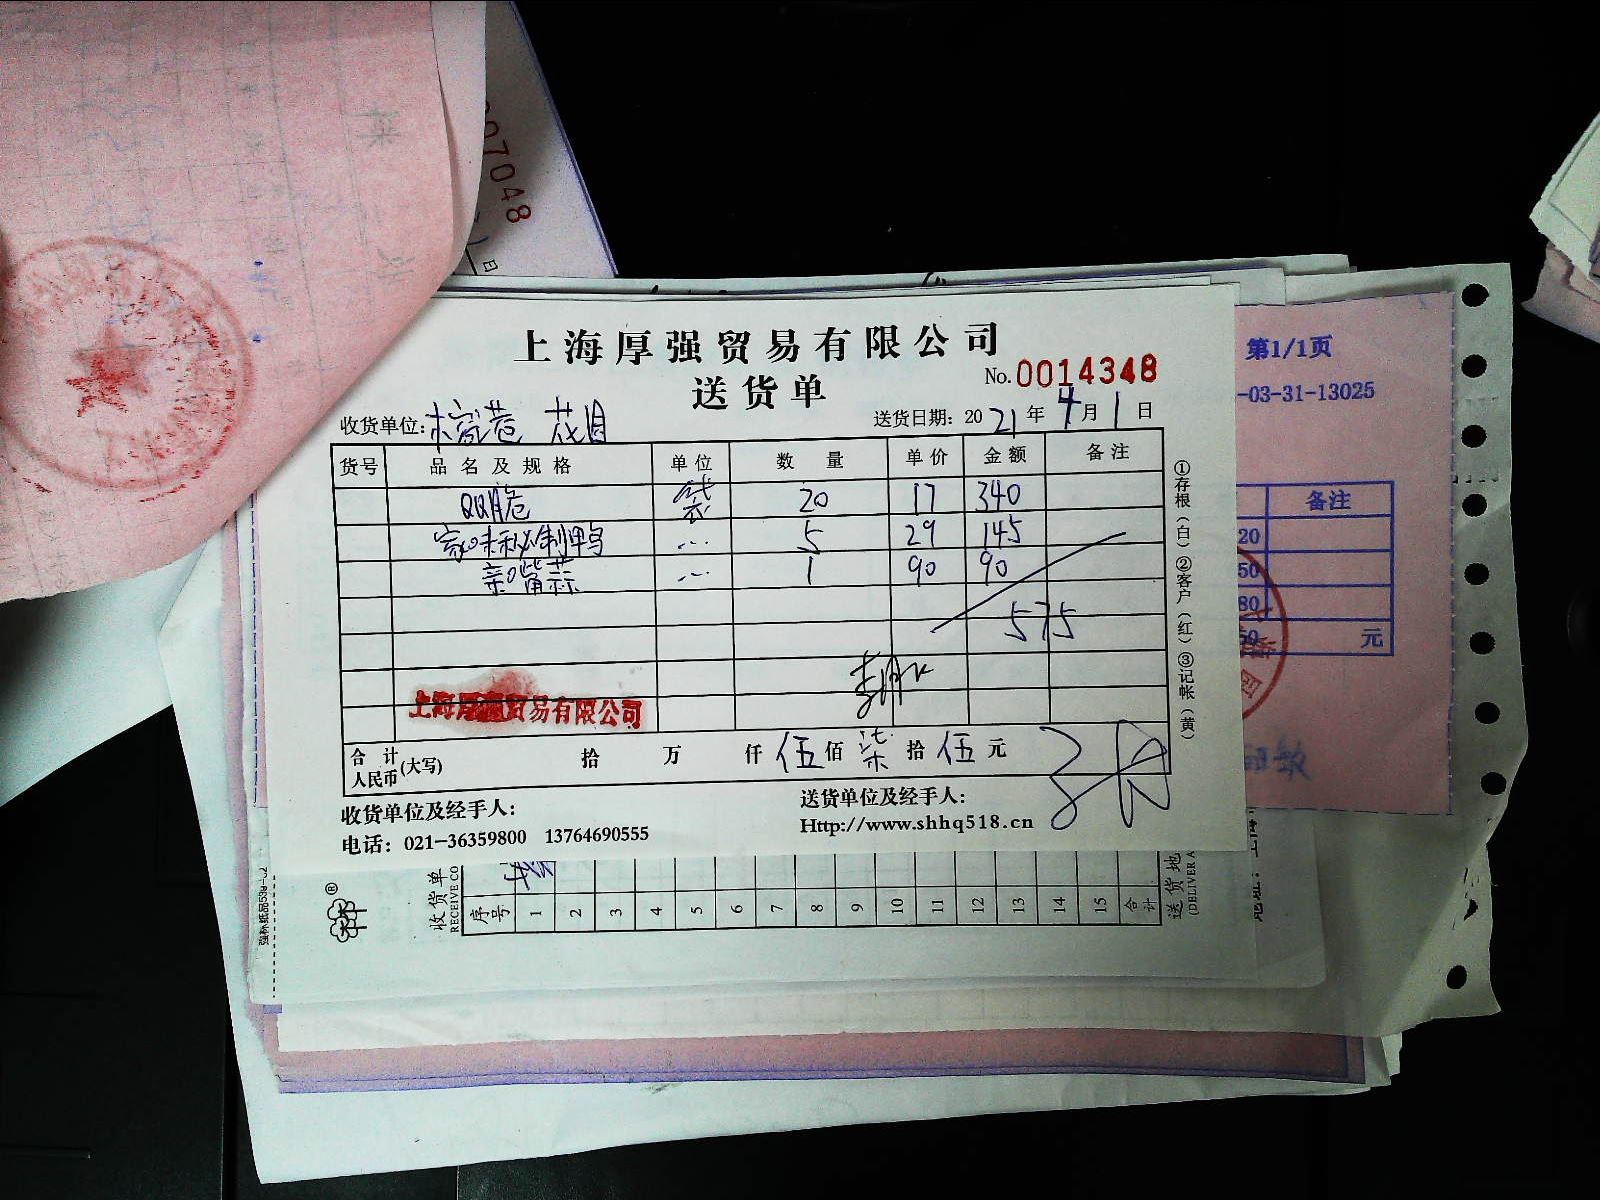 07048
日
上海厚强贸易有限公司
送货单
No.0014348
收货单位:
送货日期: 2021年4月1日
货号 品名及规格 单位 数量 单价 金额 备注
QQ脆 袋 20 17 340
家味秘制鸭 5 29 145
亲嘴蒜 1 90 90
575
上海厚强贸易有限公司
合计人民币(大写) 拾 万 仟 伍佰 柒拾 伍元
收货单位及经手人:
送货单位及经手人:
电话: 021-36359800 13764690555
Http://www.shhq518.cn
①存根(白) ②客户(红) ③记帐(黄)
第1/1页
-03-31-13025
备注
20
50
80
元
收货单
RECEIVE CO
序号 1 2 3 4 5 6 7 8 9 10 11 12 13 14 15 合计
送货地
(DELIVER A